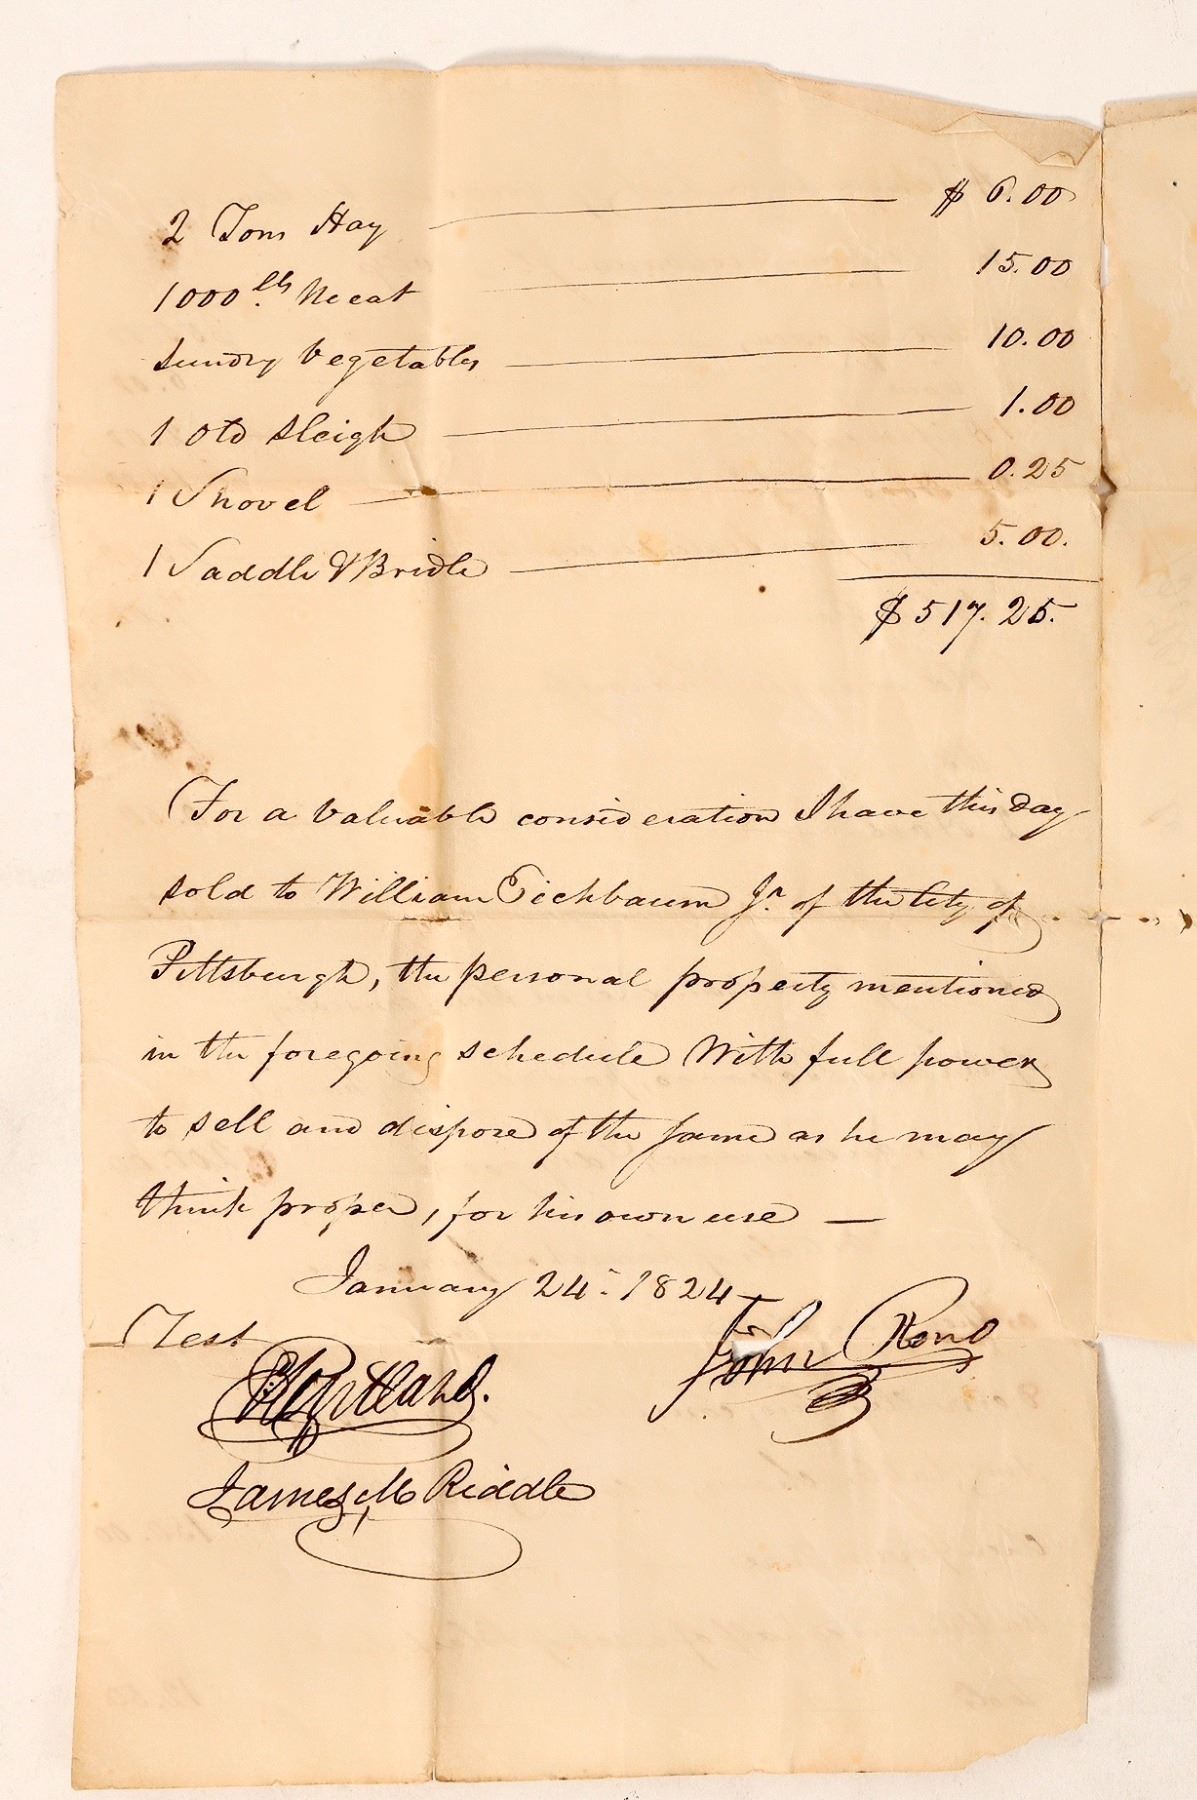 2 Tons Hay $ 6.00
1000 lbs. Meat 15.00
Sundry Vegetables 10.00
1 Old Sleigh 1.00
1 Shovel 0.25
1 Saddle & Bridle 5.00.
$517.25.
For a Valuable consideration I have this day
sold to William Eichbaum Jr. of the City of
Pittsburgh, the personal property mentioned
in the foregoing schedule With full power
to sell and dispose of the same as he may
think proper, for his own use —
January 24. 1824
Test
John Reno
James M Riddle